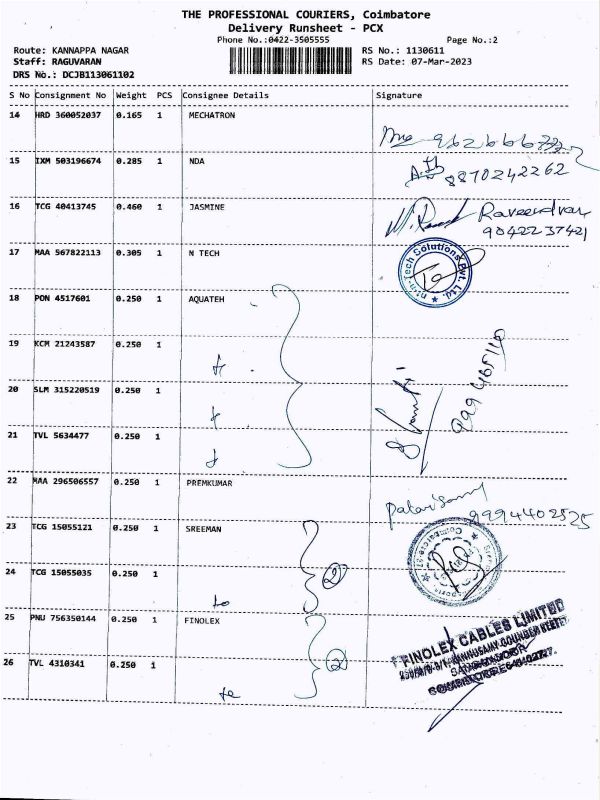 THE PROFESSIONAL COURIERS, Coimbatore
Delivery Runsheet - PCX
Phone No.:0422-3505555 Page No.:2
Route: KANNAPPA NAGAR RS No.: 1130611
Staff: RAGUVARAN RS Date: 07-Mar-2023
DRS No.: DCJB113061102
S No Consignment No Weight PCS Consignee Details Signature
14 HRD 360052037 0.165 1 MECHATRON
15 IXM 503196674 0.285 1 NDA
8870242262
16 TCG 40413745 0.460 1 JASMINE
Raveendran
9042237421
17 MAA 567822113 0.305 1 N TECH
n-Tech Solutions Pvt. Ltd.
18 PON 4517601 0.250 1 AQUATEH
19 KCM 21243587 0.250 1
20 SLM 315220519 0.250 1
21 TVL 5634477 0.250 1
22 MAA 296506557 0.250 1 PREMKUMAR
9994402525
23 TCG 15055121 0.250 1 SREEMAN
24 TCG 15055035 0.250 1
2
25 PNU 756350144 0.250 1 FINOLEX
FINOLEX CABLES LIMITED
26 TVL 4310341 0.250 1
2